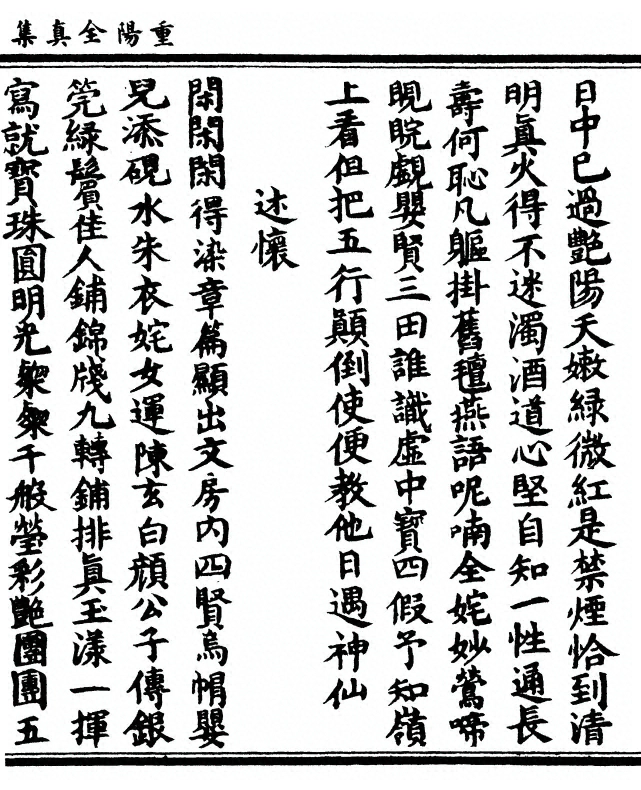 重陽全真集
日中已過艷陽天嫩綠微紅是禁煙恰到清
明真火得不迷濁酒道心堅自知一性通長
壽何恥凡軀掛舊氊燕語呢喃全姹妙鶯啼
睍睆覷嬰賢三田誰識虛中寶四假予知嶺
上看但把五行顛倒使便教他日遇神仙
述懷
閑閑閑得染章篇顯出文房內四賢烏帽嬰
兒添硯水朱衣姹女運陳玄白顏公子傳銀
筦綠鬢佳人鋪錦牋九轉鋪排真玉漾一揮
寫就寶珠圓明光粲粲千般瑩彩艷團團五